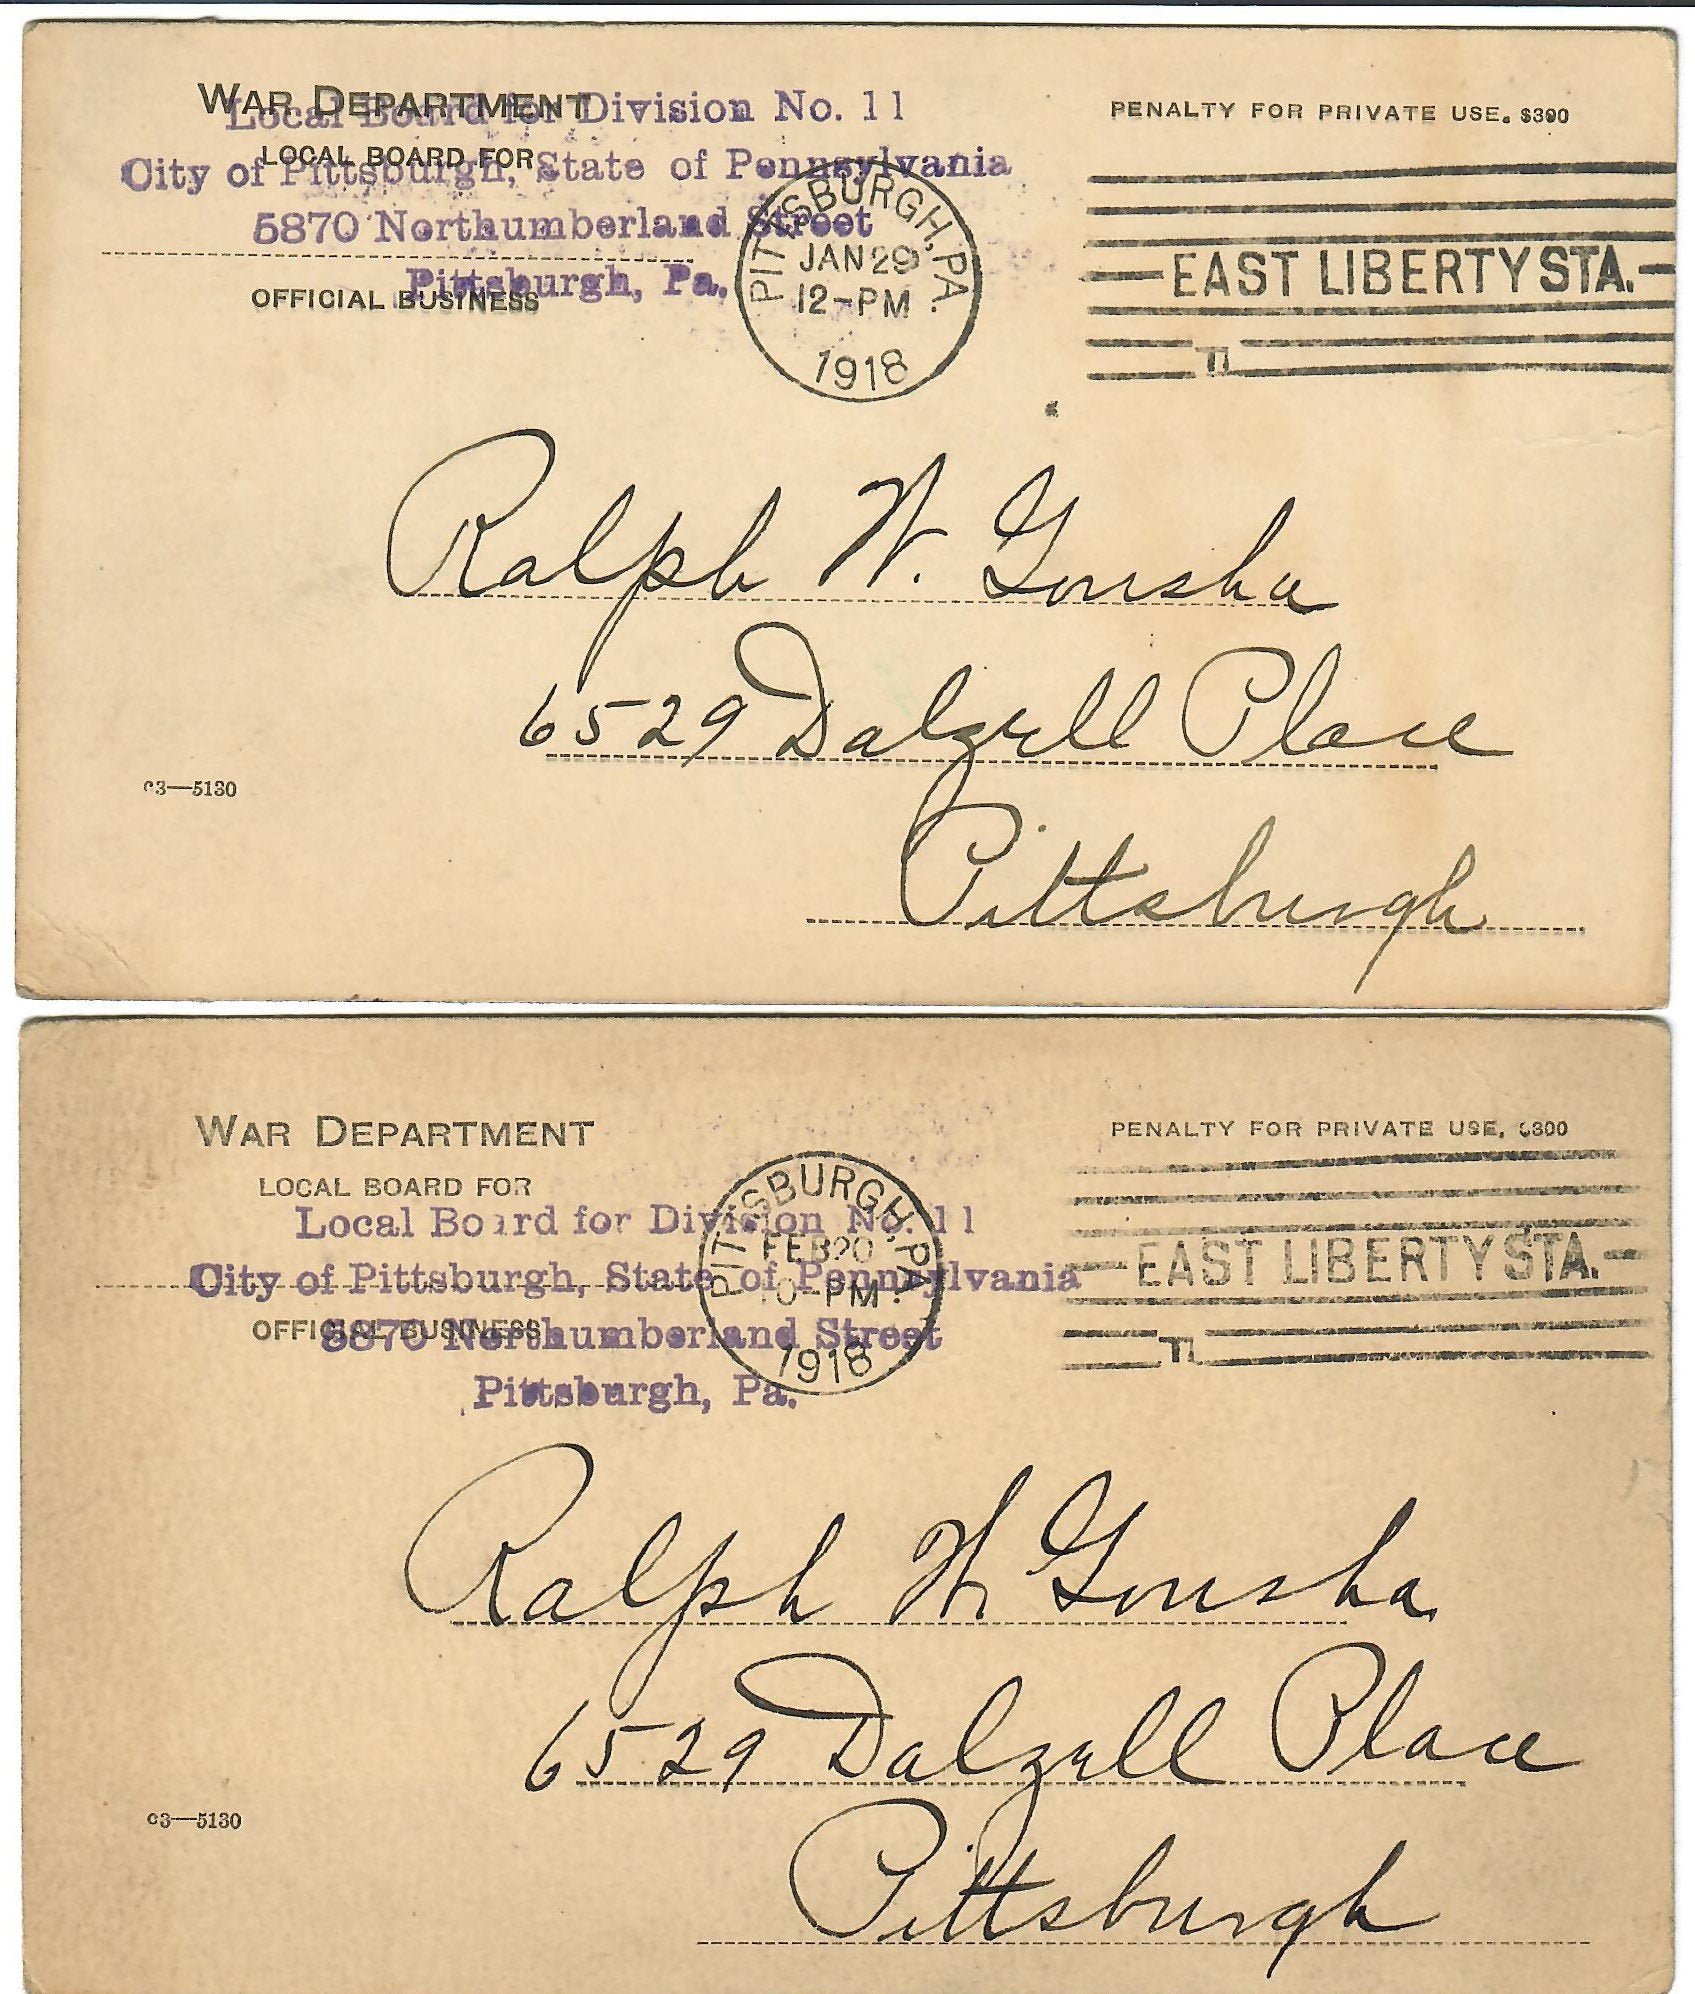 WAR DEPARTMENT
LOCAL BOARD FOR
OFFICIAL BUSINESS
Local Board for Division No. 11
City of Pittsburgh, State of Pennsylvania
5870 Northumberland Street
Pittsburgh, Pa.
PENALTY FOR PRIVATE USE, $300
PITTSBURGH, PA.
JAN 29
12-PM
1918
EAST LIBERTY STA.
Ralph W. Gousha
6529 Dalzell Place
Pittsburgh
03—5130
WAR DEPARTMENT
LOCAL BOARD FOR
OFFICIAL BUSINESS
Local Board for Division No. 11
City of Pittsburgh, State of Pennsylvania
5870 Northumberland Street
Pittsburgh, Pa.
PENALTY FOR PRIVATE USE, $300
PITTSBURGH, PA.
FEB 20
PM
1918
EAST LIBERTY STA.
Ralph W Gousha
6529 Dalzell Place
Pittsburgh
03—5130